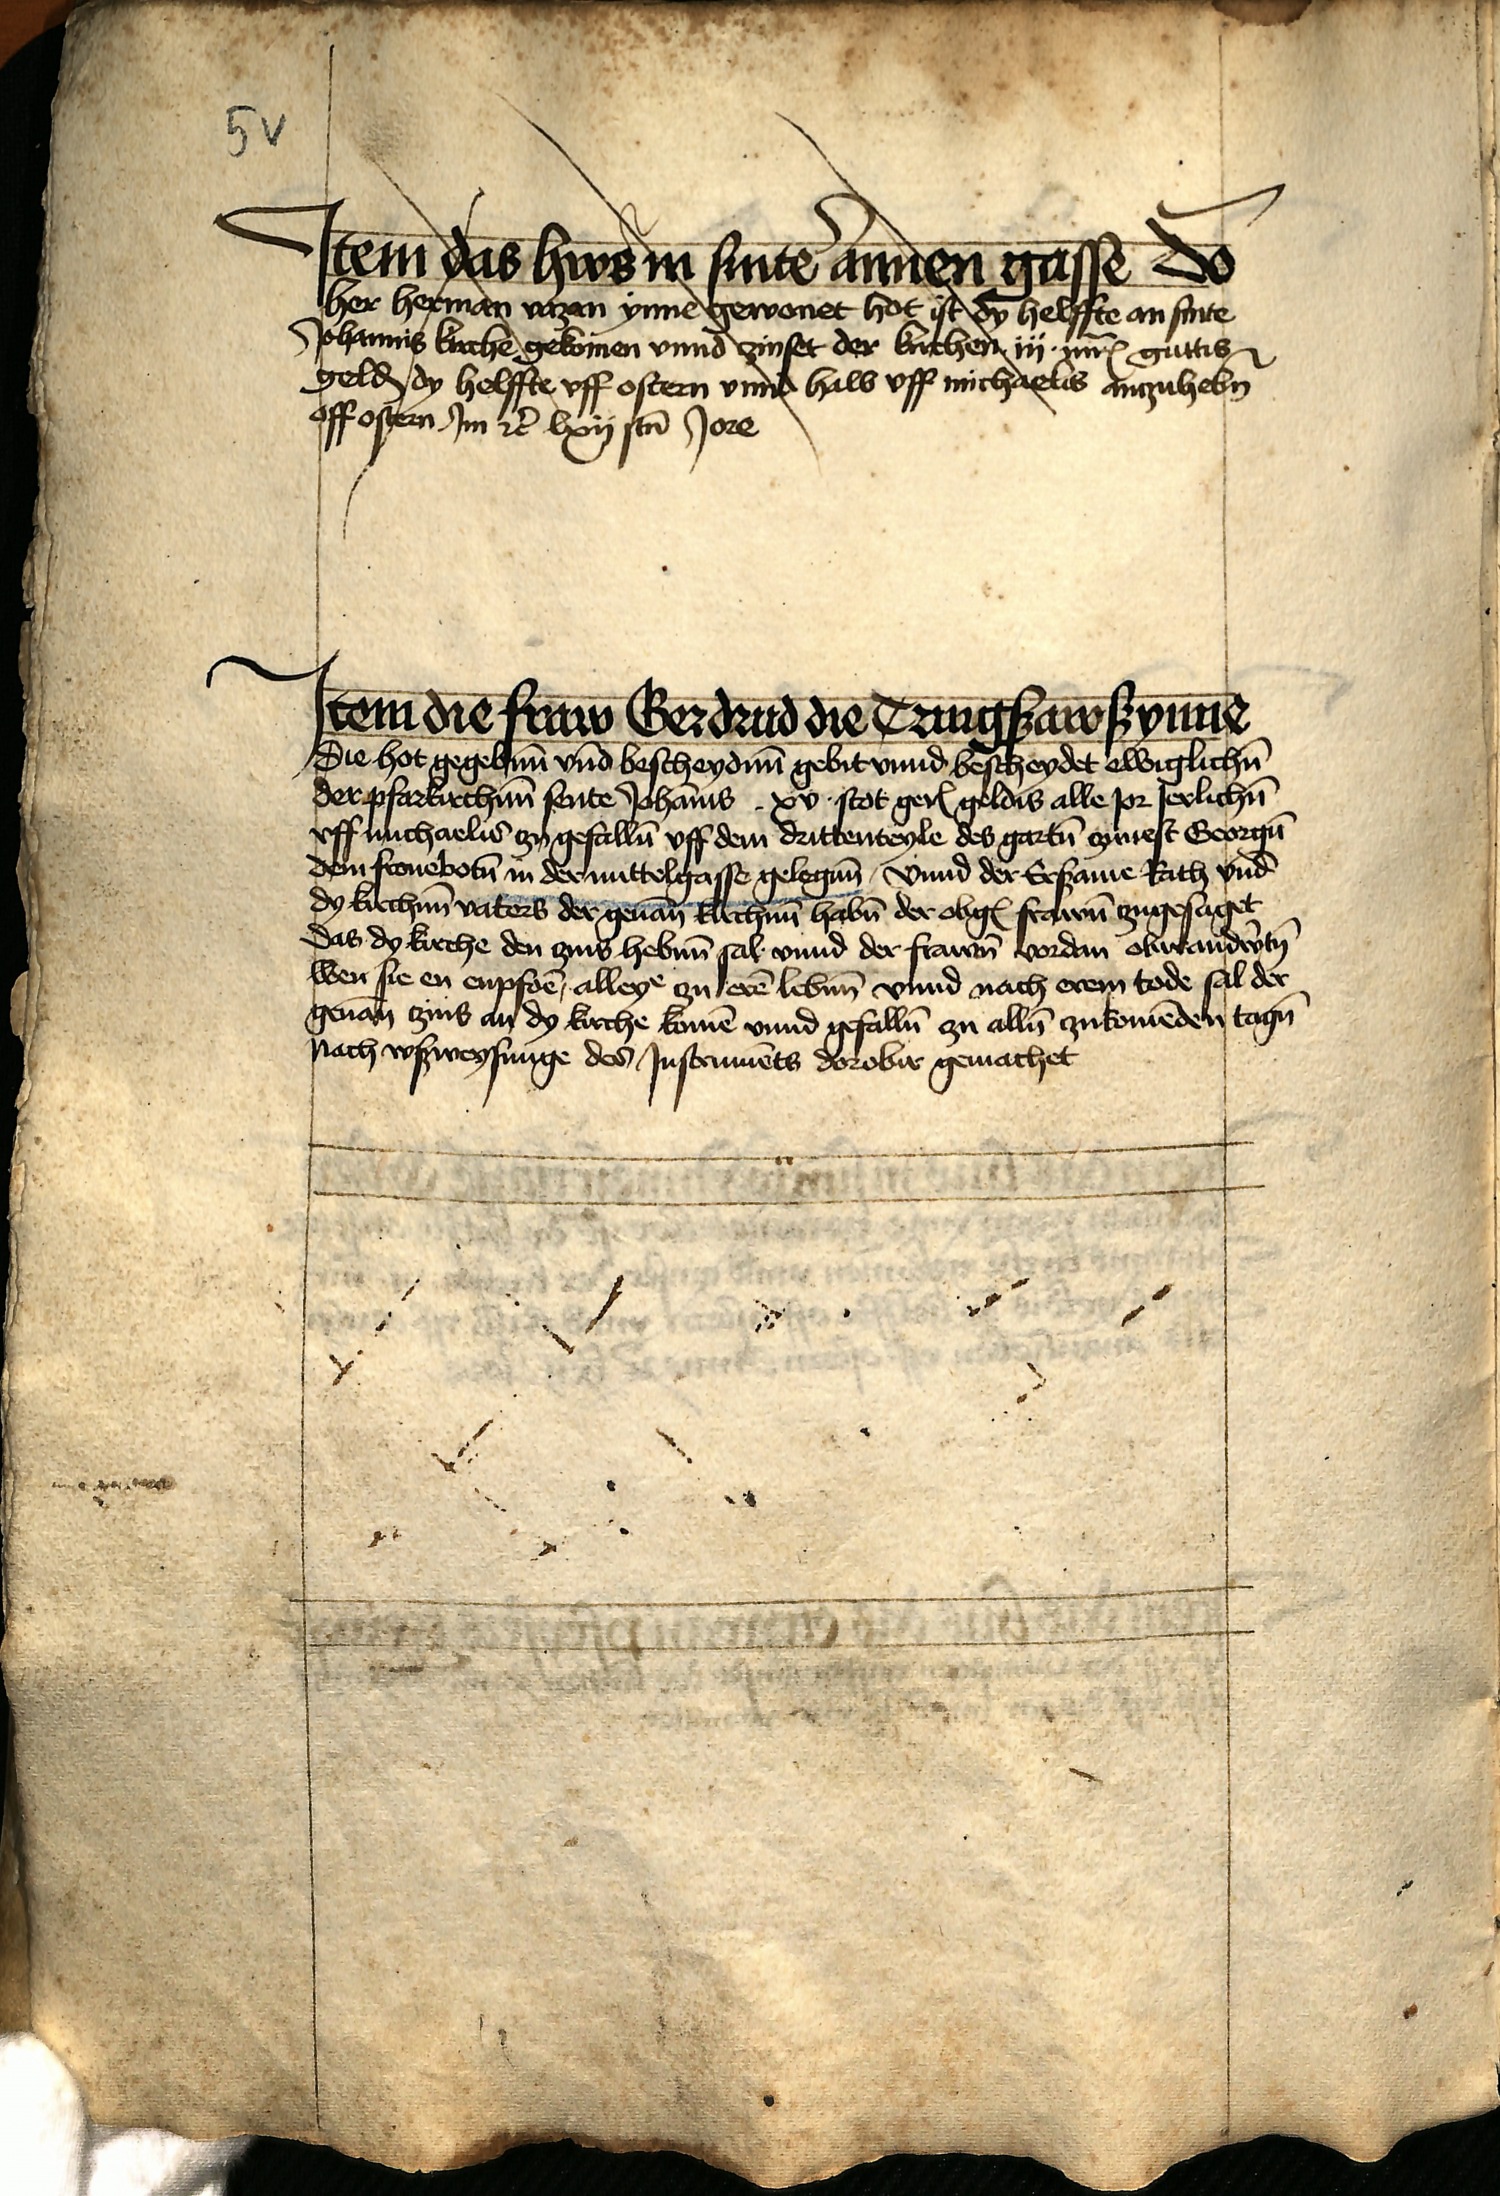 5v
Item das hws in sinte annen gasse Do
her herman ynne gewonet hot ist dy helffte an sinte
Johannis kirche gekomen vnnd zinset der kirchen iij mr̃ guttis
geld dy helffte vff ostern vnnd halb vff michaelis anzuhebn̄
off ostern Im lxij stn̄ Jore
Item die fraw Gerdrud die
Die hot gegebnn̄ vnd̄ bescheydnn̄ gebit vnnd bescheydet ewiglichn̄
der pfarkirchnn̄ sente Johānis . xv . scot ger geldis alle Jor Jerlichn̄
vff michaelis zu gefalln̄ vff dem drittenteyle des gartn̄ zunest Georgn̄
dem fronebotn̄ in der mittelgasse gelegnn̄ / Vnnd der Ersame Rath vnd̄
dy kirchnn̄ vaters der genān kirchnn̄ habn̄ der obg frawn̄ zugesaget
das dy kirche den zins hebnn̄ sal vnnd der frawn̄ vordan
wen sie en enpfoē, alleyᵉ zu erē lebnn̄ vnnd nach erem tode sal der
genān zins an dy kirche komē vnnd gefalln̄ zu alln̄ zukomēden tagn̄
Nach wszweysunge des Instrumēts dorobir gemachet